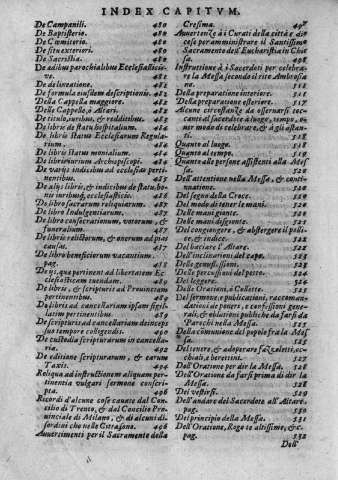 INDEX CAPITVM.
De Campanili. 480
De Baptisterio. 482
De Cœmiterio. 482
De situ exteriori. 482
De Sacristia. 482
De ædibus parochialibus Ecclesiasticisve. 482
De delineatione. 482
De formula eiusdem descriptionis. 482
Della Cappella maggiore. 482
Delle Cappelle, ò Altari. 482
De titulo, iuribus, & redditibus. 483
De libris de statu hospitalium.
De libris status Ecclesiarum Regularium.
De libris status monialium.
De libris iurium Archiepiscopi.
De varijs indicibus ad ecclesias pertinentibus.
De alijs libris, & indicibus de statu, bonis iuribusq; ecclesiasticis.
De libro sacrarum reliquiarum. 487
De libro Indulgentiarum. 487
De libro consecrationum, votorum, & funeralium. 487
De libris relictorum, & onerum ad pias causas. 487
De libro beneficiorum vacantium. pag.
De ijs, quæ pertinent ad libertatem Ecclesiasticam tuendam.
De libris, & scripturis ad Prouinciam pertinentibus.
De libris ad cancellariam ipsam sigillatim pertinentibus.
De scripturis ad cancellariam deinceps suo tempore colligendis. 490
De custodia scripturarum in cancellaria. 492
De editione scripturarum, & earum Taxis. 494
Reliqua ad instructionem aliquam pertinentia vulgari sermone conscripta. 496
Ricordi d'alcune cose cauate dal Concilio di Trento, & dal Concilio Prouinciale di Milano, & di alcuni disordini che nelle Città sono. 496
Auuertimenti per il Sacramento della
Cresima. 497
Auuertenze à i Curati della città e diocese per amministrare il Santissimo Sacramento dell'Eucharistia in Chiesa.
Instruttione à i Sacerdoti per celebrare la Messa secondo il rito Ambrosiano.
Della preparatione interiore.
Della preparatione esteriore. 517
Alcune circostanze da osseruarsi toccanti al sacerdote à luogo, tempo, vero modo di celebrare, & à gli astanti.
Quanto al luogo.
Quanto al tempo.
Quanto alle persone assistenti alla Messa.
Dell'attentione nella Messa, & continuatione.
Del segno della Croce.
Del modo di tener le mani.
Delle mani giunte.
Delle mani disgiunte.
Del congiongere, & abstergere il pollice, & indice.
Del baciare l'Altare.
Dell'inclinationi del capo. 523
Delle genuflessioni.
Delle percussioni del petto.
Del leggere.
Delle Orationi, ò Collette.
Del sermone, e publicationi, raccomandationi de' poueri, e confessioni generali, & oblationi publiche da farsi da' Parochi nella Messa.
Della communione del popolo fra la Messa.
Del tenere, & adoperare fazzoletti, occhiali, e berettini. 527
Dell'Oratione per dir la Messa. 528
Dell'Oratione da farsi prima di dir la Messa. 528
Dei vestirsi. 529
Dell'andare del Sacerdote all'Altare. pag. 530
Del principio della Messa. 531
Dell'Oratione, Rogo te altissime, &c. pag. 532
Dell'